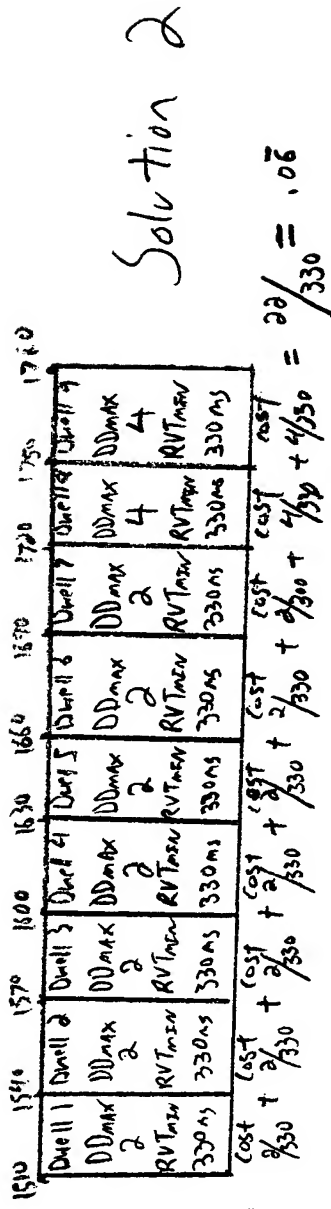 Solution 2
1510 1540 1570 1600 1630 1660 1690 1720 1750 1780
Dwell 1 Dwell 2 Dwell 3 Dwell 4 Dwell 5 Dwell 6 Dwell 7 Dwell 8 Dwell 9
DDMAX DDMAX DDMAX DDMAX DDMAX DDMAX DDMAX DDMAX DDMAX
2 2 2 2 2 2 2 4 4
RVTMIN RVTMIN RVTMIN RVTMIN RVTMIN RVTMIN RVTMIN RVTMIN RVTMIN
330ms 330ms 330ms 330ms 330ms 330ms 330ms 330ms 330ms
Cost Cost Cost Cost Cost Cost Cost Cost Cost
2/330 + 2/330 + 2/330 + 2/330 + 2/330 + 2/330 + 2/300 + 4/330 + 4/330 = 22/330 = .06